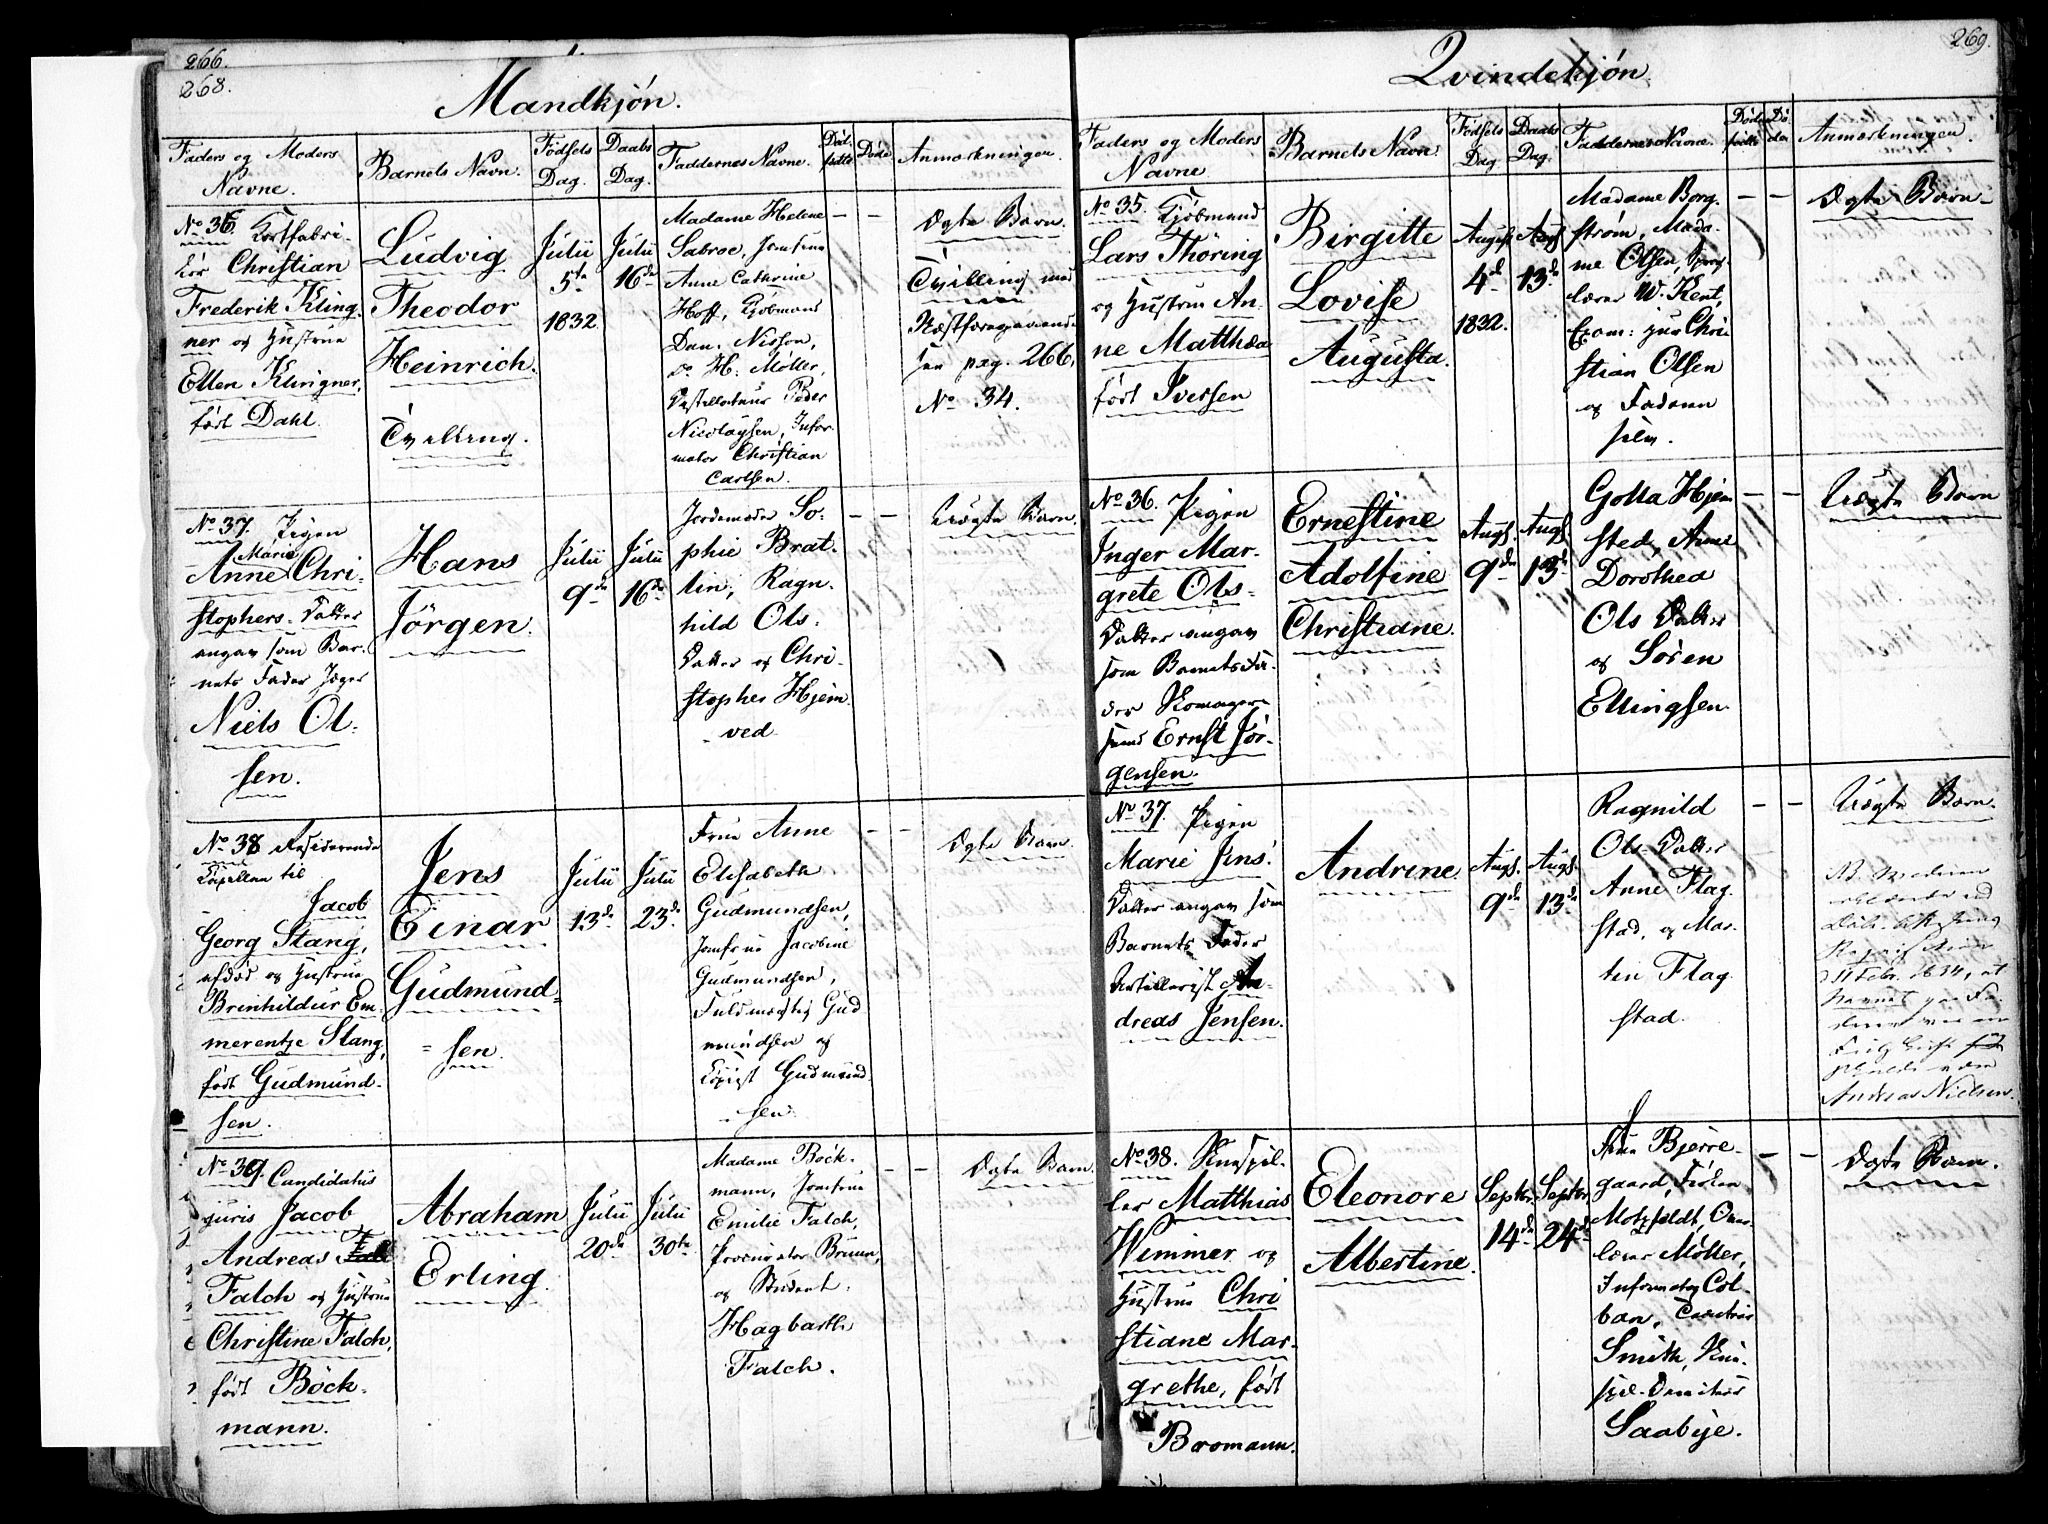 266.
268.
Mandkjön.
Faders og Moders
Navne.
Barnets Navn.
Födsels
Dag.
Daabs
Dag.
Faddernes Navne.
Död-
födte
Döde
Anmærkningen.
No 36. Kortfabri-
kör Christian
Frederik Kling-
ner og Hustrue
Ellen Klingner,
født Dahl.
Ludvig
Theodor
Heinrich.
Tvilling.
Julii
5te
1832.
Julii
16de
Madame Helene
Sabroe, Jomfrue
Anne Cathrine
Hoff, Kjøbmand
Dan. Nisson,
do H. Møller,
Destillateur Peder
Nicolaysen, Infor-
mator Christian
Carlsen.
— —
Ægte Barn.
Tvilling med
Næstforegaaende
see pag. 266,
No 34.
No 37. Pigen
Marie
Anne Chri-
stophers-Datter
angav som Bar-
nets Fader Jæger
Niels Ol-
sen.
Hans
Jörgen.
Julii
9de
Julii
16de
Jordemoder So-
phie Brat-
lin, Ragn-
hild Ols-
Datter og Chri-
stopher Hjem-
ved.
— —
Uægte Barn.
No 38 Residerende
Capellan til
Jacob
Georg Stang,
afdød og Hustrue
Brinhildur Em-
merentje Stang,
født Gudmund-
sen.
Jens
Einar
Gudmund-
sen.
Julii
13de
Julii
23de
Frue Anne
Elisabeth
Gudmundsen,
Jomfrue Jacobine
Gudmundsen,
Fuldmægtig Gud-
mundsen og
Copist Gudmund-
sen.
— —
Ægte Barn.
No 39. Candidatus
juris Jacob
Andreas
Falch og Hustrue
Christine Falch,
født Böck-
mann.
Abraham
Erling.
Julii
20de
Julii
30te
Madame Böck-
mann, Jomfrue
Emilie Falch,
Procurator Bruun,
og Student
Hagbarth
Falch.
— —
Ægte Barn.
269.
Qvindekjön.
Faders og Moders
Navne
Barnets Navn.
Födsels
Dag
Daabs
Dag.
Faddernes Navne.
Död-
födte
Dö-
de
Anmærkningen.
No 35. Kjøbmand
Lars Thöring
og Hustrue An-
ne Matthea
født Iversen
Birgitte
Lovise
Augusta.
August
4de
1832.
Augs.
13de
Madame Borg-
ström, Mada-
me Olsen, Sprog-
lærer W. Kent,
Exam: jur Chri-
stian Olsen
og Faderen
selv.
— —
Ægte Barn
No 36. Pigen
Inger Mar-
grete Ols-
Datter angav
som Barnets Fa-
der Skomager-
svend Ernst Jör-
gensen.
Ernestine
Adolfine
Christiane.
Augs.
9de
Augs.
13de
Golla Hjem-
sted, Anne
Dorothea
Ols Datter
og Sören
Ellingsen.
— —
Uægte Barn
No 37. Pigen
Marie Jens-
Datter angav som
Barnets Fader
Artillerist An-
dreas Jensen.
Andrine
Augs.
9de
Augs.
13de
Ragnild
Ols-Datter
Anne Flag-
stad, og Mar-
tin Flag-
stad.
— —
Uægte Barn.
Febr. 1834, at
Andreas Nielsen.
No 38. Skuespil-
ler Matthias
Wimmer og
Hustrue Chri-
stiane Mar-
grethe, født
Bromann.
Eleonore
Albertine.
Septbr.
14de
Septbr.
24de
Frue Bjerre-
gaard, Frøken
Motzfeldt,
lærer Møller,
Informator Col-
ban,
Smith,
Saabye.
— —
Ægte Barn.